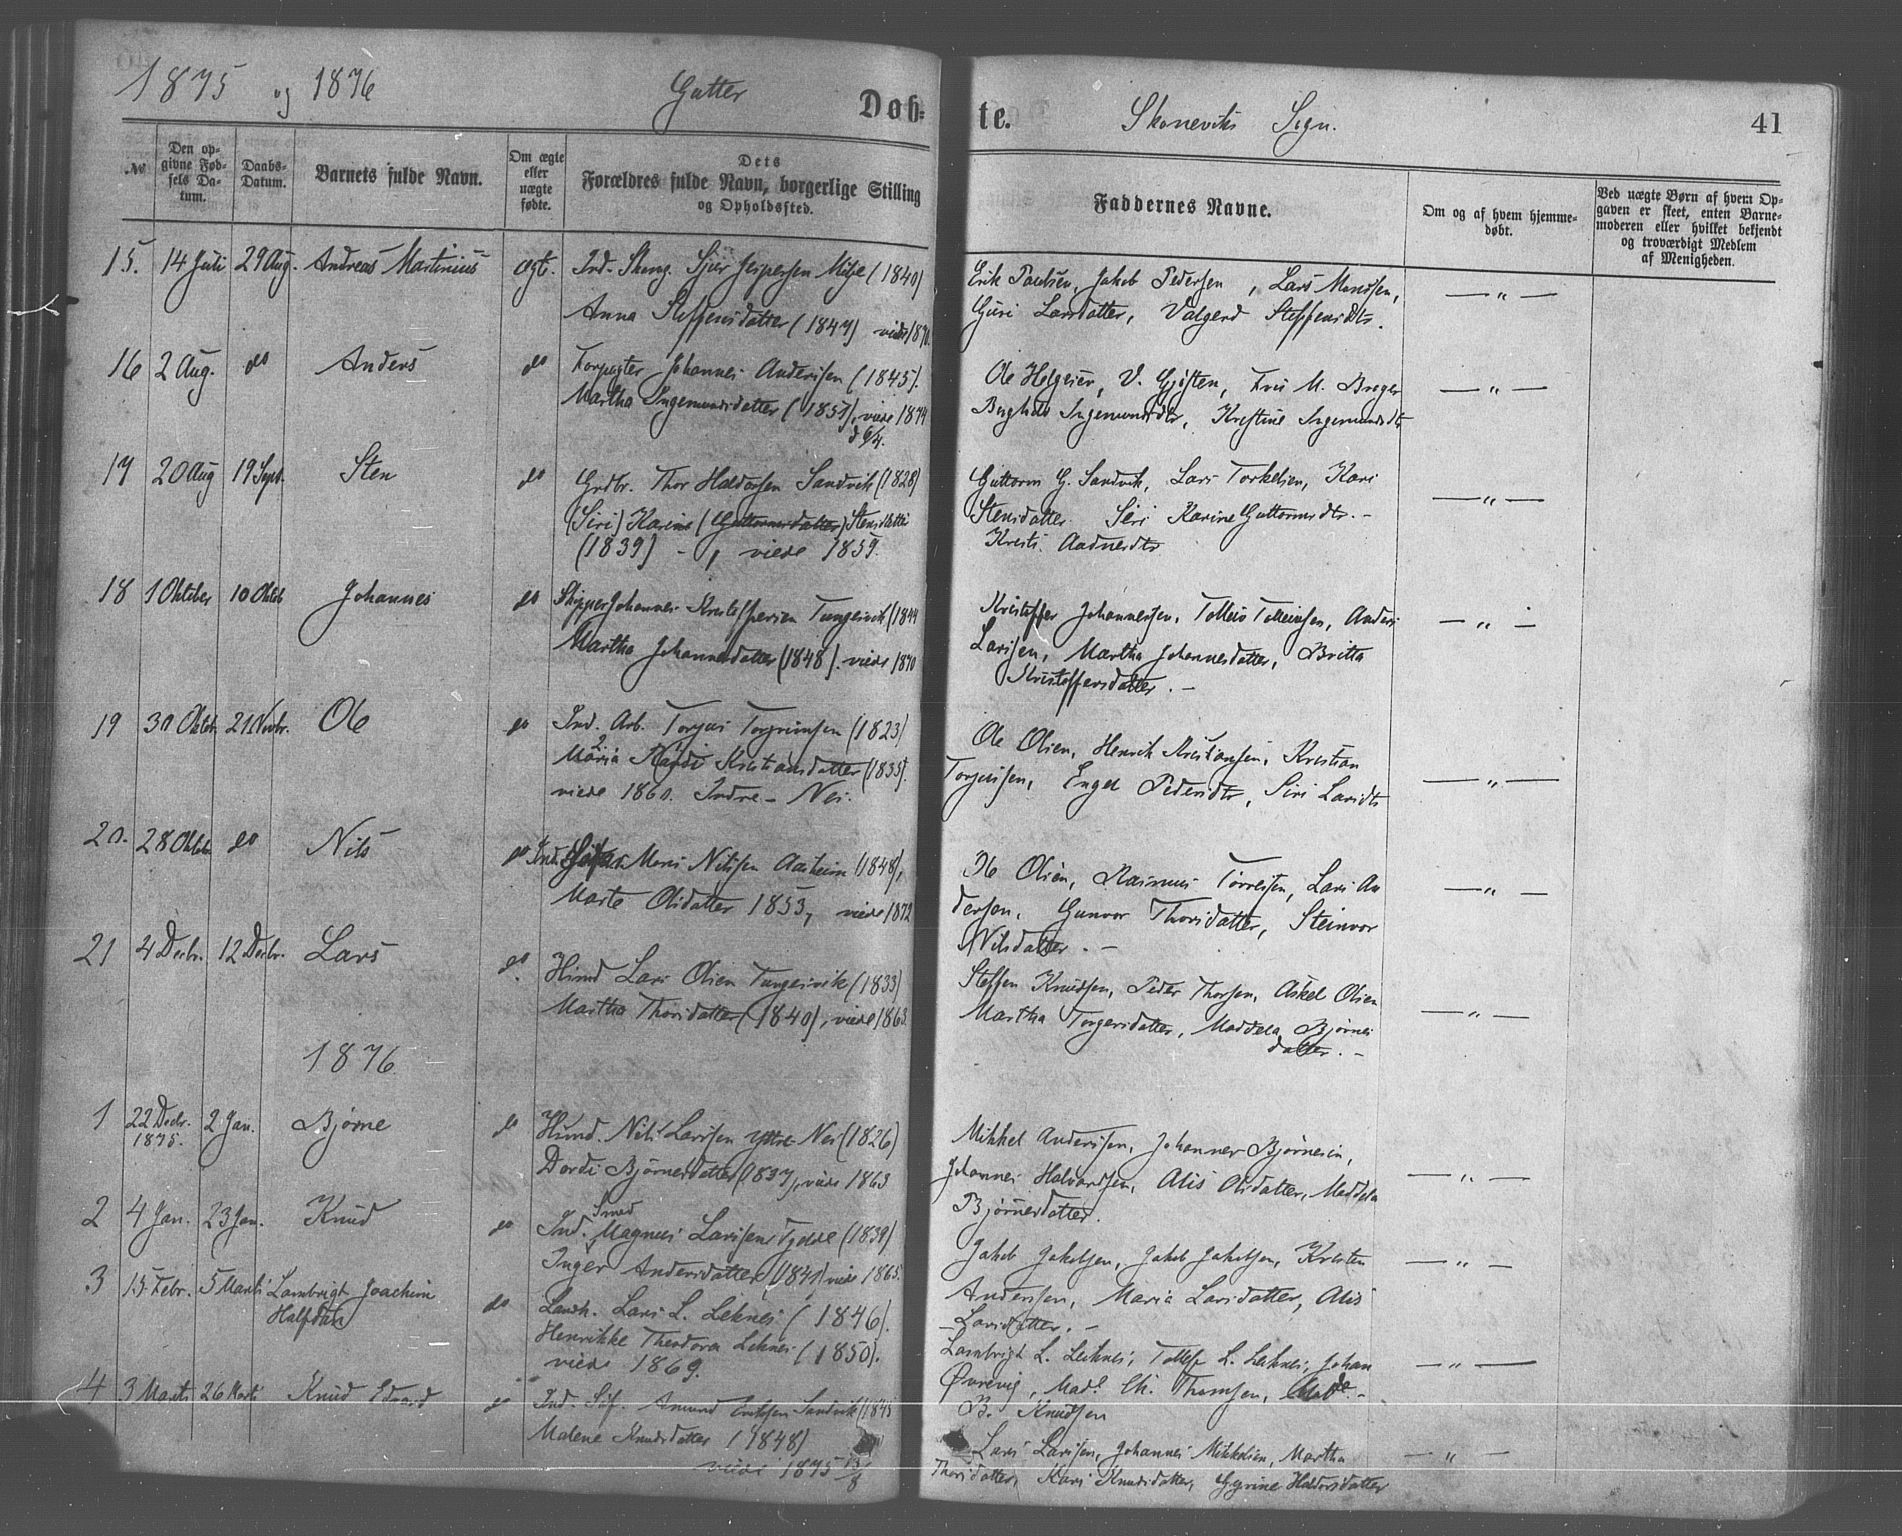 1875 og 1876 Gutter Døb=
№
Den op-
givne Fød-
sels Da-
tum.
Daabs-
Datum.
Barnets fulde Navn.
Om ægte
eller
uægte
fødte.
Dets
Forældres fulde Navn, borgerlige Stilling
og Opholdssted.
15. 14 Juli 29 Aug. Andreas Martinius ægt. Ind. Sjur Jespersen (1840)
Anna Steffensdatter (1847) viede 1870.
16 2 Aug. do Anders do Forpagter Johannes Andersen (1845).
Martha Ingemundsdatter (1851), viede 1874
d 6/4.
17 20 Aug 19 Sept. Sten do Grdbr. Thor Haldorsen Sandvik (1828)
(Siri) Karine (Guttormsdatter) Stensdatter
(1839) - , viede 1859.
18 1 Oktober 10 Oktob Johannes do Skipper Johannes Kristoffersen Tungesvik (1844
Martha Johannesdatter (1848). viede 1870
19 30 Oktbr. 21 Novbr. Ole do Ind. Arb. Torgrimsen (1823)
Maria Kristiansdatter (1835).
viede 1860. Indre - Nes.
20. 28 Oktob. do Nils do Ind. Mons Nilssen Aasheim (1848),
Marte Olsdatter 1853, viede 1872
21 4 Decbr. 12 Decbr. Lars do Hmd Lars Olsen Tungesvik (1833)
Martha Thorsdatter (1840), viede 1863.
1876.
1 22 Decbr. 2 Jan. Bjørne do Hmd. Nils Larssen Yttre Nes (1826)
1875.
Dordi Bjørnesdatter (1837), viede 1863
2 4 Jan. 23 Jan. Knud do Ind. Smed Magnus Larssen (1839)
Inger Andersdatter (1841) viede 1865.
3 15 Febr. 5 Marts Lambrigt Joachim
Halfdan do Landh. Lars L. Leknes (1846).
Henrikke Theodora Leknes (1850).
viede 1869.
4 3 Marts 26 Marts Knud Edvard do Ind. Amund Eriksen Sandvik (1845
Malene Knudsdatter (1848)
viede 1875 13/8
te. Skoneviks Sogn. 41
Faddernes Navne.
Om og af hvem hjemme-
døbt.
Ved uægte Børn af hvem Op-
gaven er skeet, enten Barne-
moderen eller hvilket bekjendt
og troværdigt Medlem
af Menigheden.
Erik Paulsen, Jakob Pedersen, Lars Monssen, — " —
Guri Larsdatter, Valgerd Steffensdtr.
Ole Helgesen, V. Gjøsten, Fru M. Breger — " —
Berghild Ingemundsdtr, Kristine Ingemundsdtr
Guttorm G. Sandvik, Lars Torkelsen, Kari — " —
Stensdatter Siri Karine Guttormsdtr. -
Kristi Aadnesdtr
Kristoffer Johannessen, Tolleiv Tolleivsen, Anders — " —
Larssen, Martha Johannesdatter, Britta
Kristoffersdatter. -
Ole Olsen, Henrik Kristiansen, Kristian
Torjussen, Engel Pedersdtr, Siri Larsdtr — " —
Ole Olsen, Rasmus Torressen, Lars An — " —
dersen, Gunvor Thorsdatter, Steinvor
Nilsdatter. -
Steffen Knudsen, Peder Thorsen, Askel Olsen
Martha Torgersdatter, Maddela Bjørnes — " —
datter. -
Mikkel Anderssen, Johannes Bjørnesen,
Johannes Halvardsen, Alis Olsdatter, Maddela — " —
Bjørnesdatter.
Jakob Jakobsen, Jakob Jakobsen, Kristen — " —
Anderssen, Maria Larsdatter, Alis
Larsdatter. -
Lambrigt L. Leknes, Tollef L. Leknes, Johan — " —
Øvrevig, Madᵉ Ch. Thomsen, Madᵉ. -
B. Knudsen
Lars Larssen, Johannes Mikkelsen, Martha — " —
Thorsdatter, Kari Knudsdatter, Gyrine Haldorsdatter